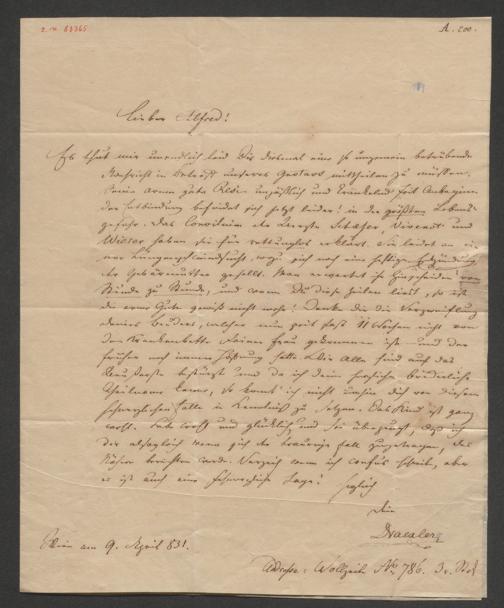 2.14 88365
A. 200.
Lieber Alfred!
Es thut mir unendlich leid Dir diesmal eine so ungemein betrübende
Nachricht in Betreff unseres Gustavs mittheilen zu müssen.
Seine arme gute unpäßlich und kränkelnd seit Anbeginn
der Entbindung befindet sich jetzt leider! in der größten Lebens
gefahr. Das Consilium der Aerzte Schäfer, Vivenot und
Wierer haben sie für rettungslos erklärt. Sie leidet an ei
ner Lungenschwindsucht, wozu sich noch eine heftige Entzündung
der Gebärmutter gesellt. Man erwartet ihr Hinscheiden von
Stunde zu Stunde, und wenn Du diese Zeilen liest, so ist
die arme Gute gewiß nicht mehr! Denke Dir die Verzweiflung
deines Bruders, welcher nun seit fast 11 Wochen nicht von
dem Krankenbette seiner Frau gekommen ist und der
früher noch immer Hoffnung hatte. Wir Alle sind auf das
Äußerste bestürzt und da ich dein herzliche brüderliche
Theilname kenne, so konnt' ich nicht umhin dich von diesem
schmerzlichen Falle in Kenntniß zu setzen. Das Kind ist ganz
wohl. Lebe wohl und glücklich und sei überzeugt, daß ich
dir alsogleich wenn sich der traurige Fall zugetragen, das
Nähere berichten werde. Verzeih wenn ich confus schreibe, aber
es ist auch eine schreckliche Lage!
herzlich
Dein
Draexler
Wien am 9. April 831.
Adresse: Wollzeile No. 786. 3r. Stock